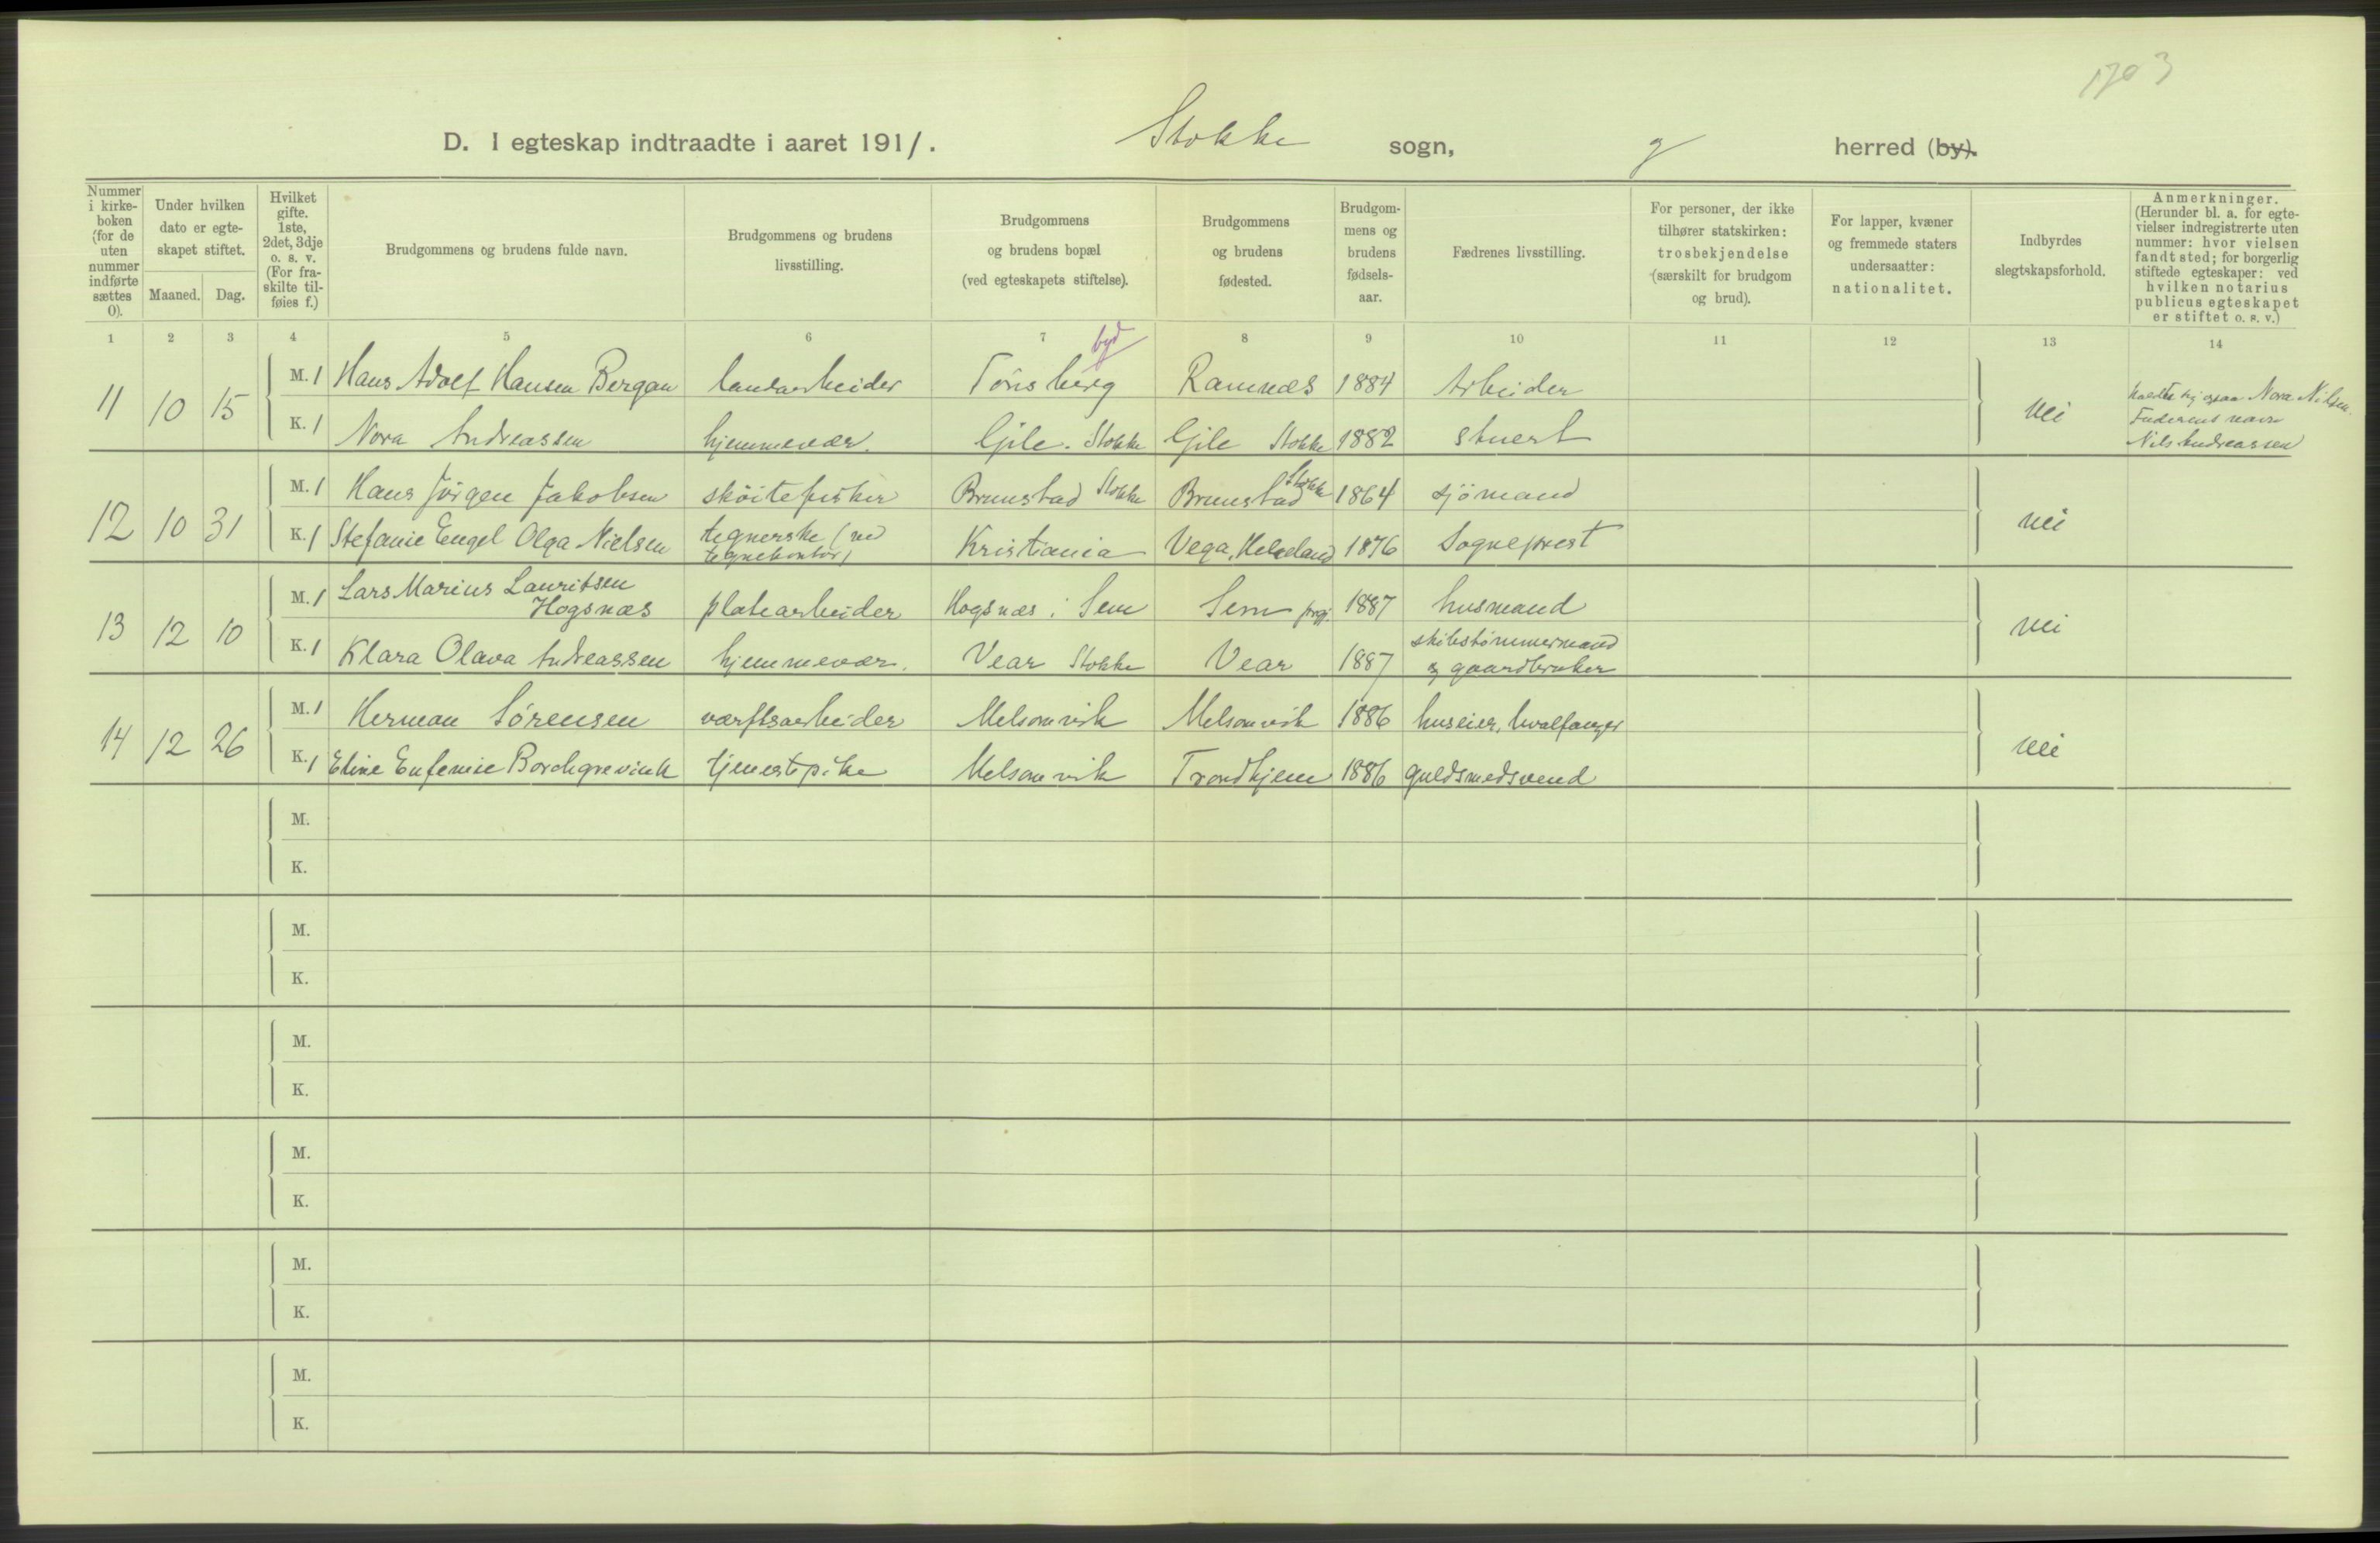 1703
D. I egteskap indtraadte i aaret 1911. Stokke sogn, herred (by).
Nummer i kirke-boken (for de uten nummer indførte sættes 0).
Under hvilken dato er egte-skapet stiftet.
Maaned. Dag.
Hvilket gifte. 1ste, 2det, 3dje o. s. v. (For fra-skilte til-føies f.)
Brudgommens og brudens fulde navn.
Brudgommens og brudens livsstilling.
Brudgommens og brudens bopæl (ved egteskapets stiftelse).
Brudgommens og brudens fødested.
Brudgom-mens og brudens fødsels-aar.
Fædrenes livsstilling.
For personer, der ikke tilhører statskirken: trosbekjendelse (særskilt for brudgom og brud).
For lapper, kvæner og fremmede staters undersaatter: nationalitet.
Indbyrdes slegtskapsforhold.
Anmerkninger. (Herunder bl. a. for egte-vielser indregistrerte uten nummer: hvor vielsen fandt sted; for borgerlig stiftede egteskaper: ved hvilken notarius publicus egteskapet er stiftet o. s. v.)
1 2 3 4 5 6 7 8 9 10 11 12 13 14
11 10 15 M. 1 Hans Adolf Hansen Bergan landarbeider Tønsberg byd Ramnæs 1884 Arbeider
K. 1 Nora Andreassen hjemmevær. Gjle. Stokke Gjle Stokke 1882 stuert nei
kaldte sig ogsaa Nora Nilsen.
Faderens navn
Nils Andreassen
12 10 31 M. 1 Hans Jørgen Jakobsen skøitefisker Brunstad Stokke Brunstad Stokke 1864 sjømand
K. 1 Stefanie Engel Olga Nielsen tegnerske (ved tegnekontor) Kristiania Vega, Helgeland 1876 Sogneprest nei
13 12 10 M. 1 Lars Marius Lauritsen Hogsnæs platearbeider Hogsnæs i Sem Sem prgj. 1887 husmand
K. 1 Klara Olava Andreassen hjemmevær. Vear Stokke Vear 1887 skibstømmermand & gaardbruker nei
14 12 26 M. 1 Herman Sørensen værftsarbeider Melsomvik Melsomvik 1886 huseier, hvalfanger
K. 1 Eline Eufemie Borchgrevink tjenestpike Melsomvik Trondhjem 1886 guldsmedsvend nei
M.
K.
M.
K.
M.
K.
M.
K.
M.
K.
M.
K.